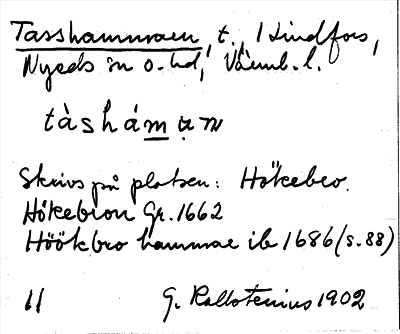 Tasshammaren, t., 1 Lindfors,
Nyeds sn o. hd, Värml. l.
tàshámạṛn
Skrivs på platsen: Hökebro.
Hökebron Gr. 1662
Höökbro hammar ib 1686 (s. 88)
11 G. Kallstenius 1902